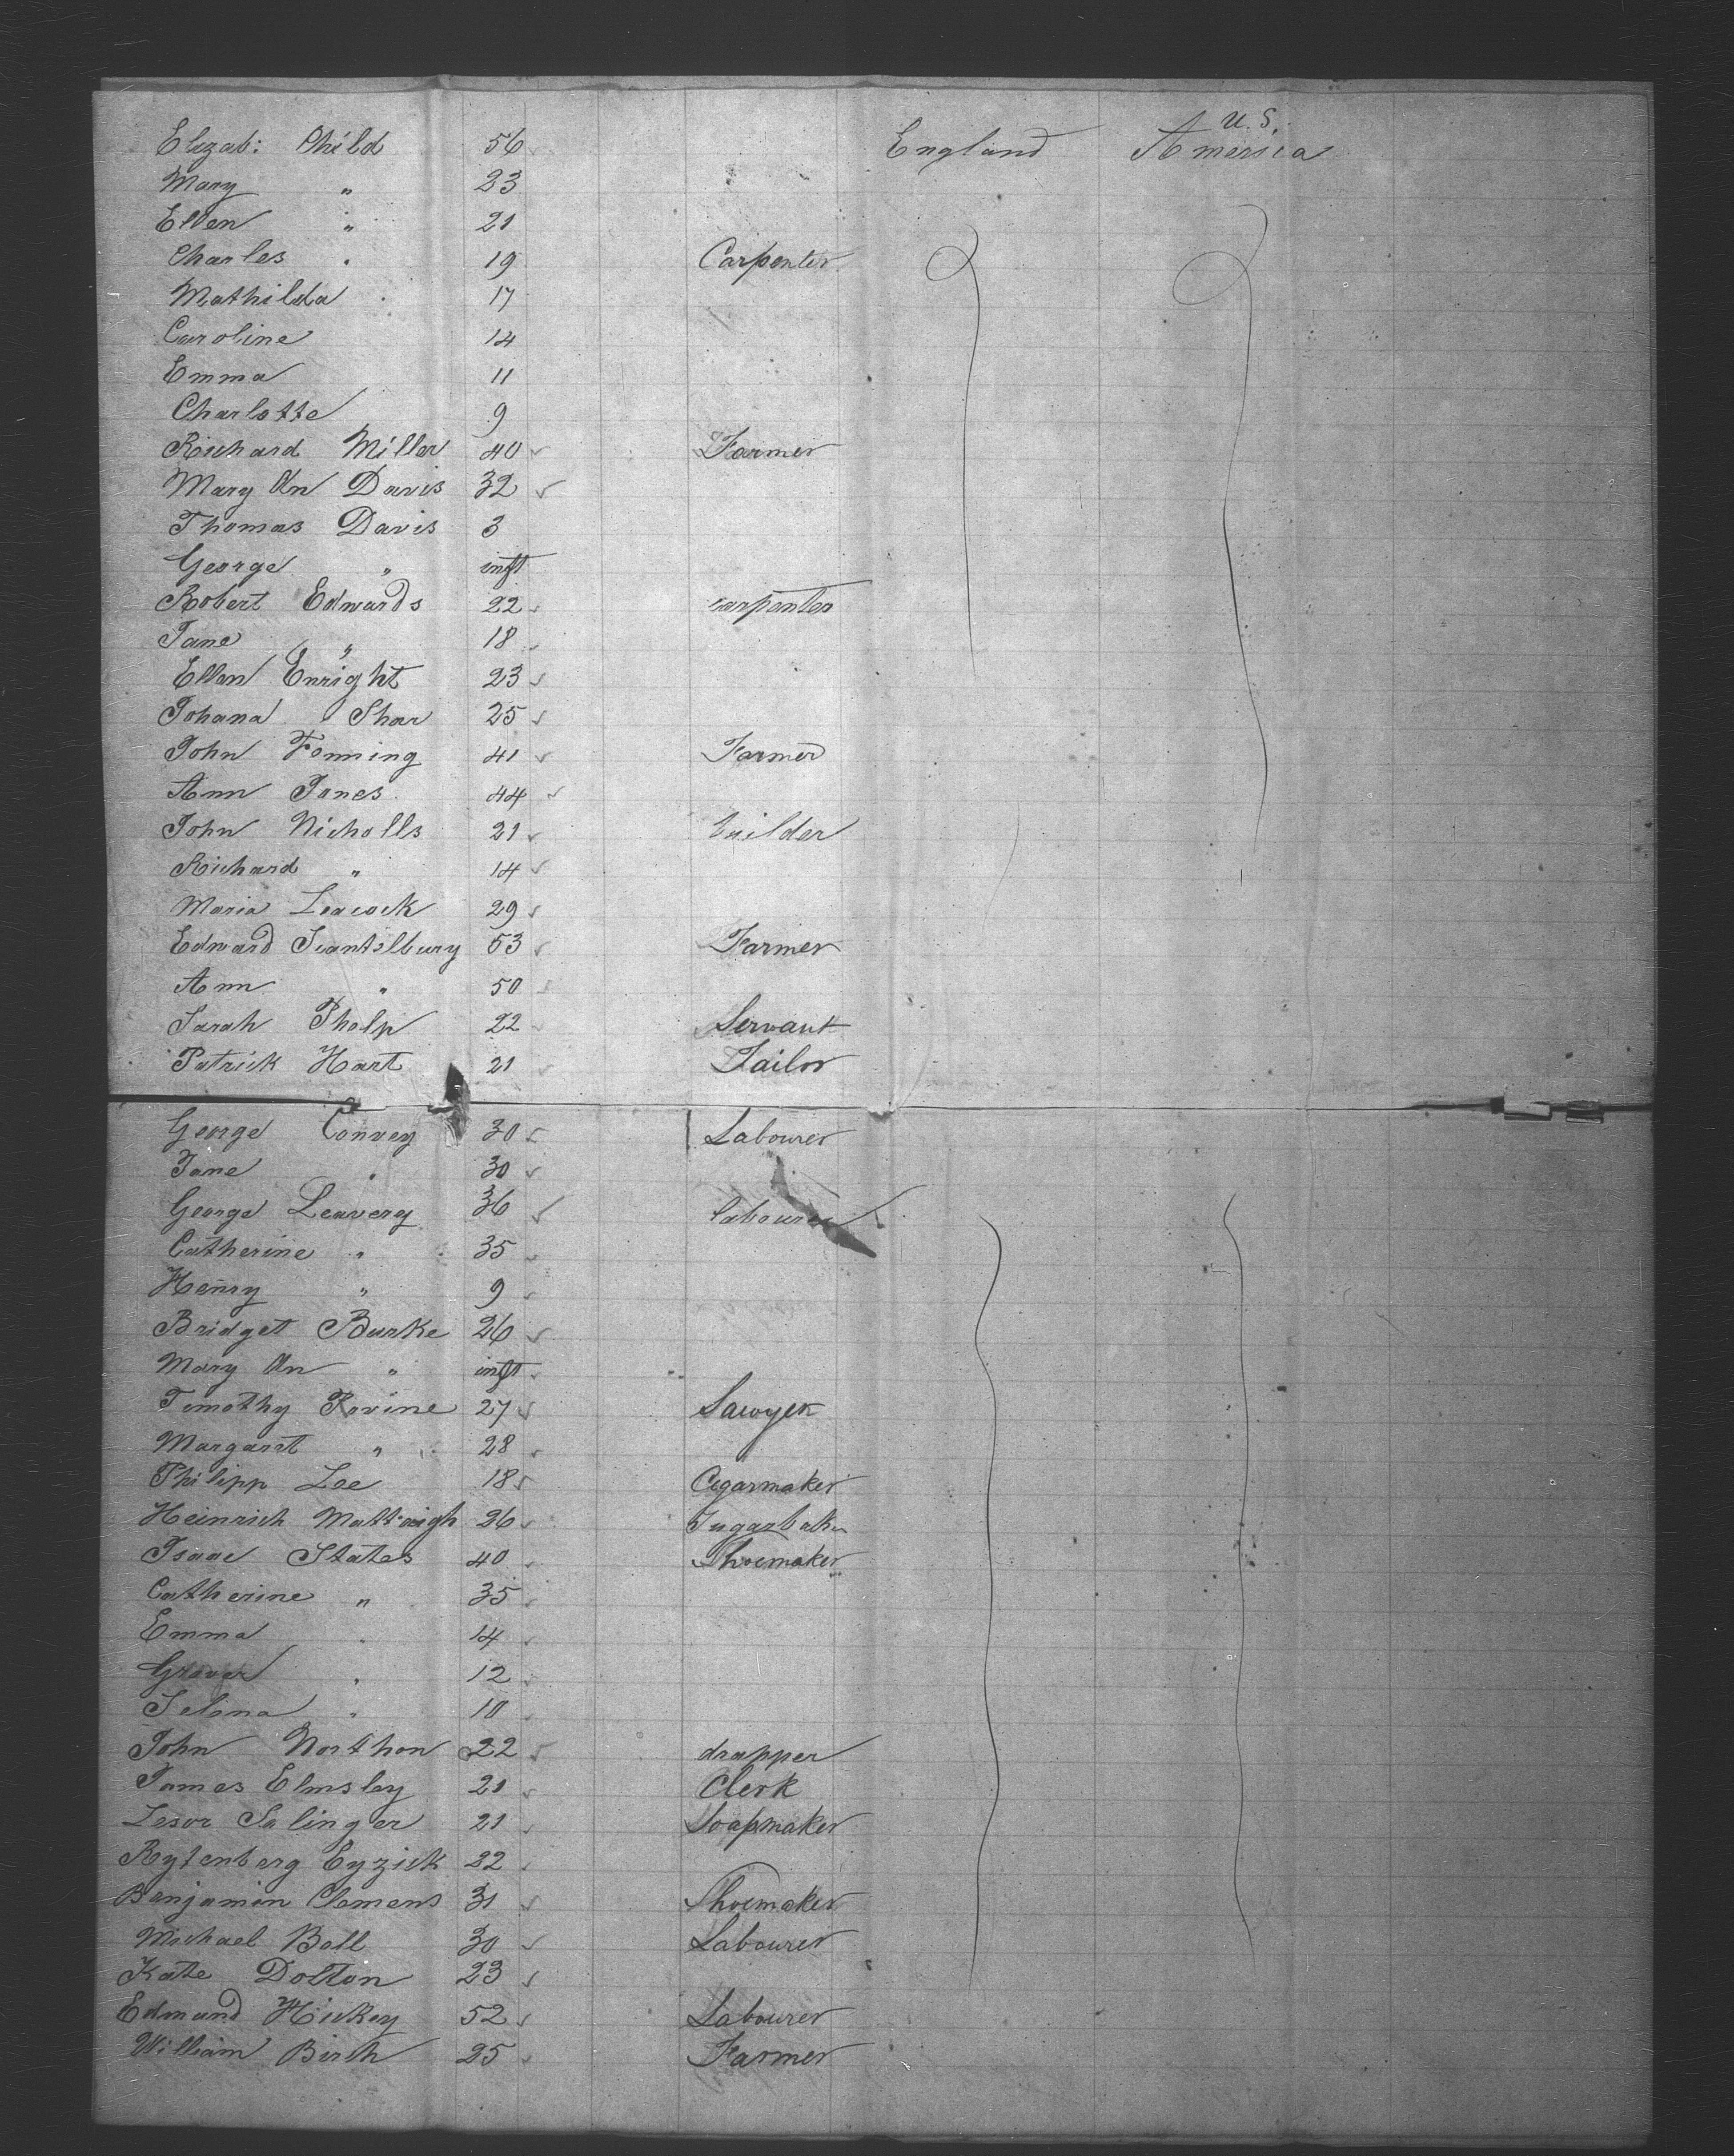 Elizab: Child 56 England U.S. America
Mary " 23
Ellen " 21
Charles " 19 Carpenter
Mathilda 17
Caroline 14
Emma 11
Charlotte 9
Richard Miller 40 Farmer
Mary An Davis 32
Thomas Davis 3
George " inft
Robert Edwards 22 carpenter
Jane " 18
Ellen Enright 23
Johana Shar 25
John Fonning 41 Farmer
Ann Jones 44
John Nicholls 21 builder
Richard " 14
Maria Leacock 29
Edward 53 Farmer
Ann " 50
Sarah Phelp 22 Servant
Patrick Hart 21 Tailor
George Convey 30 Labourer
Jane " 30
George Leavery 36 labourer
Catherine " 35
Henry " 9
Bridget Burke 26
Mary An " inft
Timothy 27 Sawyer
Margaret " 28
Philipp Lee 18 Cigarmaker
Heinrich 26 Sugarbaker
Isaac States 40 Shoemaker
Catherine " 35
Emma " 14
Grover " 12
Selena " 10
John Northon 22 drapper
James Elmsley 21 Clerk
Lesor Salinger 21 Soapmaker
Rytenberg Eyzick 22
Benjamin Clemens 31 Shoemaker
Michael Boll 30 Labourer
Kate Dolton 23
Edmund Hickey 52 Labourer
William Birch 25 Farmer